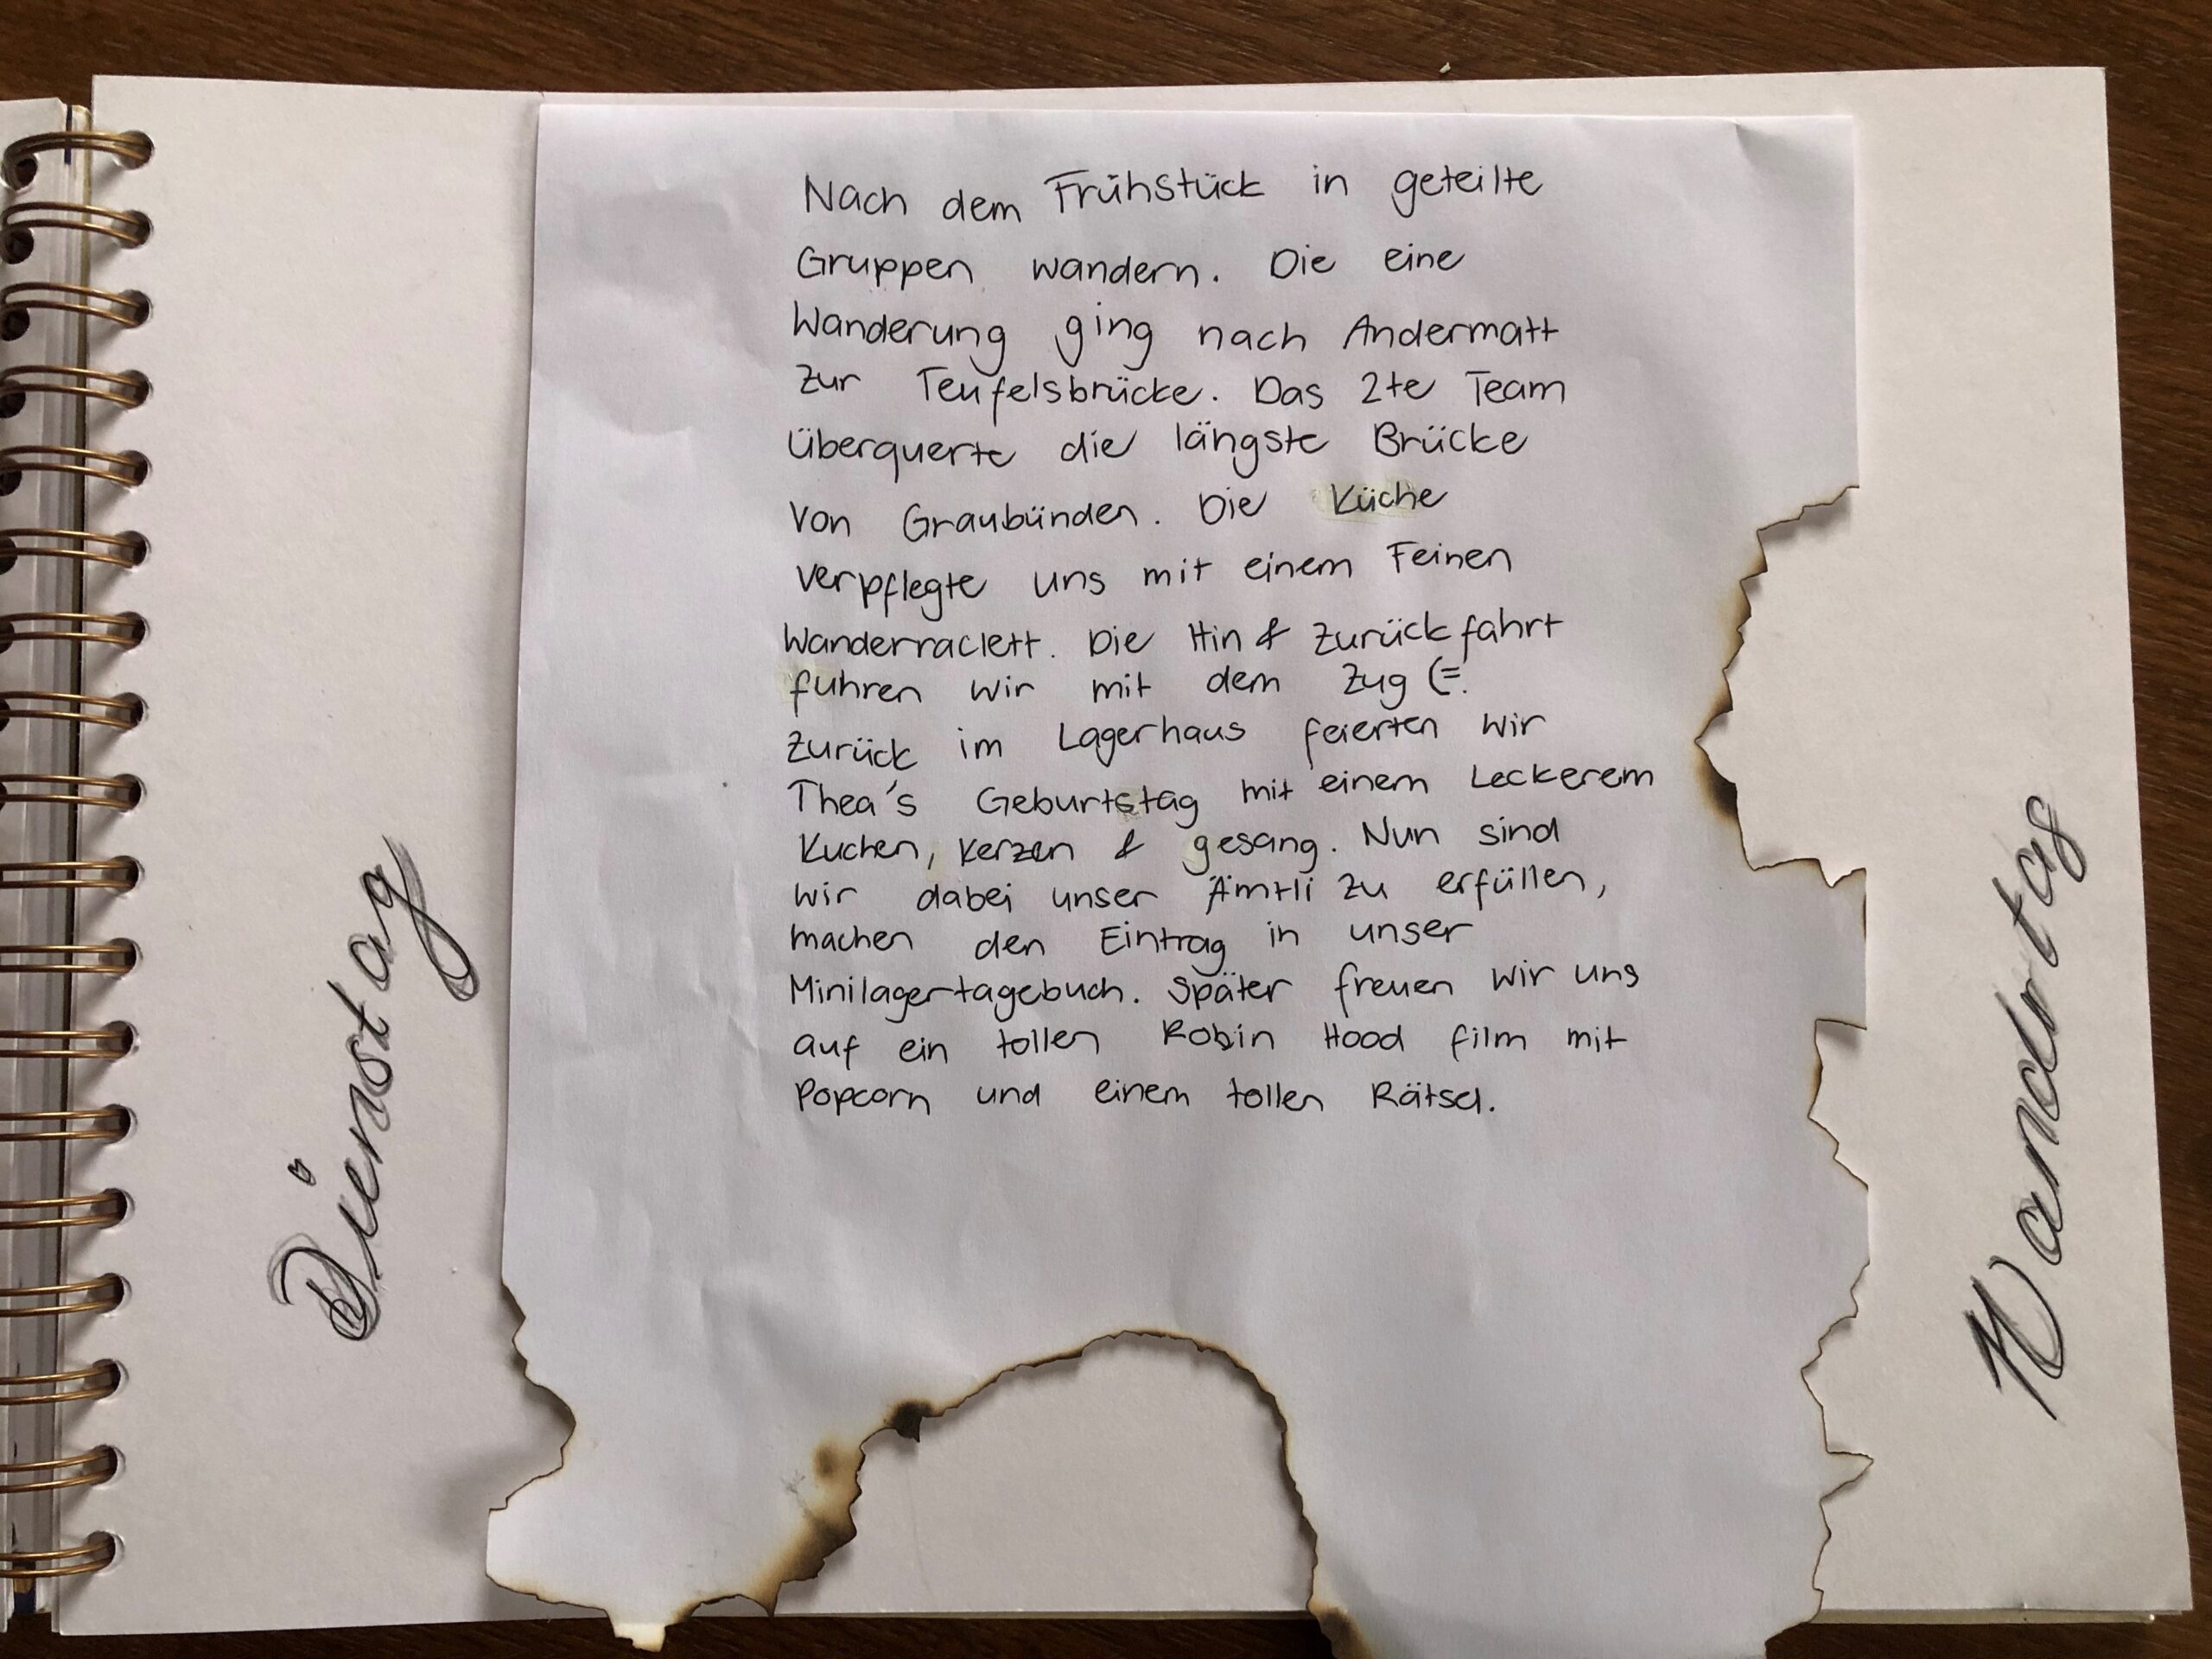 Dienstag
Nach dem Frühstück in geteilte
Gruppen wandern. Die eine
Wanderung ging nach Andermatt
zur Teufelsbrücke. Das 2te Team
Überquerte die längste Brücke
von Graubünden. Die Küche
verpflegte uns mit einem Feinen
Wanderraclett. Die Hin & Zurückfahrt
fuhren wir mit dem Zug (=.
Zurück im Lagerhaus feierten wir
Thea's Geburtstag mit einem Leckerem
Kuchen, Kerzen & gesang. Nun sind
wir dabei unser Ämtli zu erfüllen,
machen den Eintrag in unser
Minilagertagebuch. Später freuen wir uns
auf ein tollen Robin Hood film mit
Popcorn und einem tollen Rätsel.
Wandertag